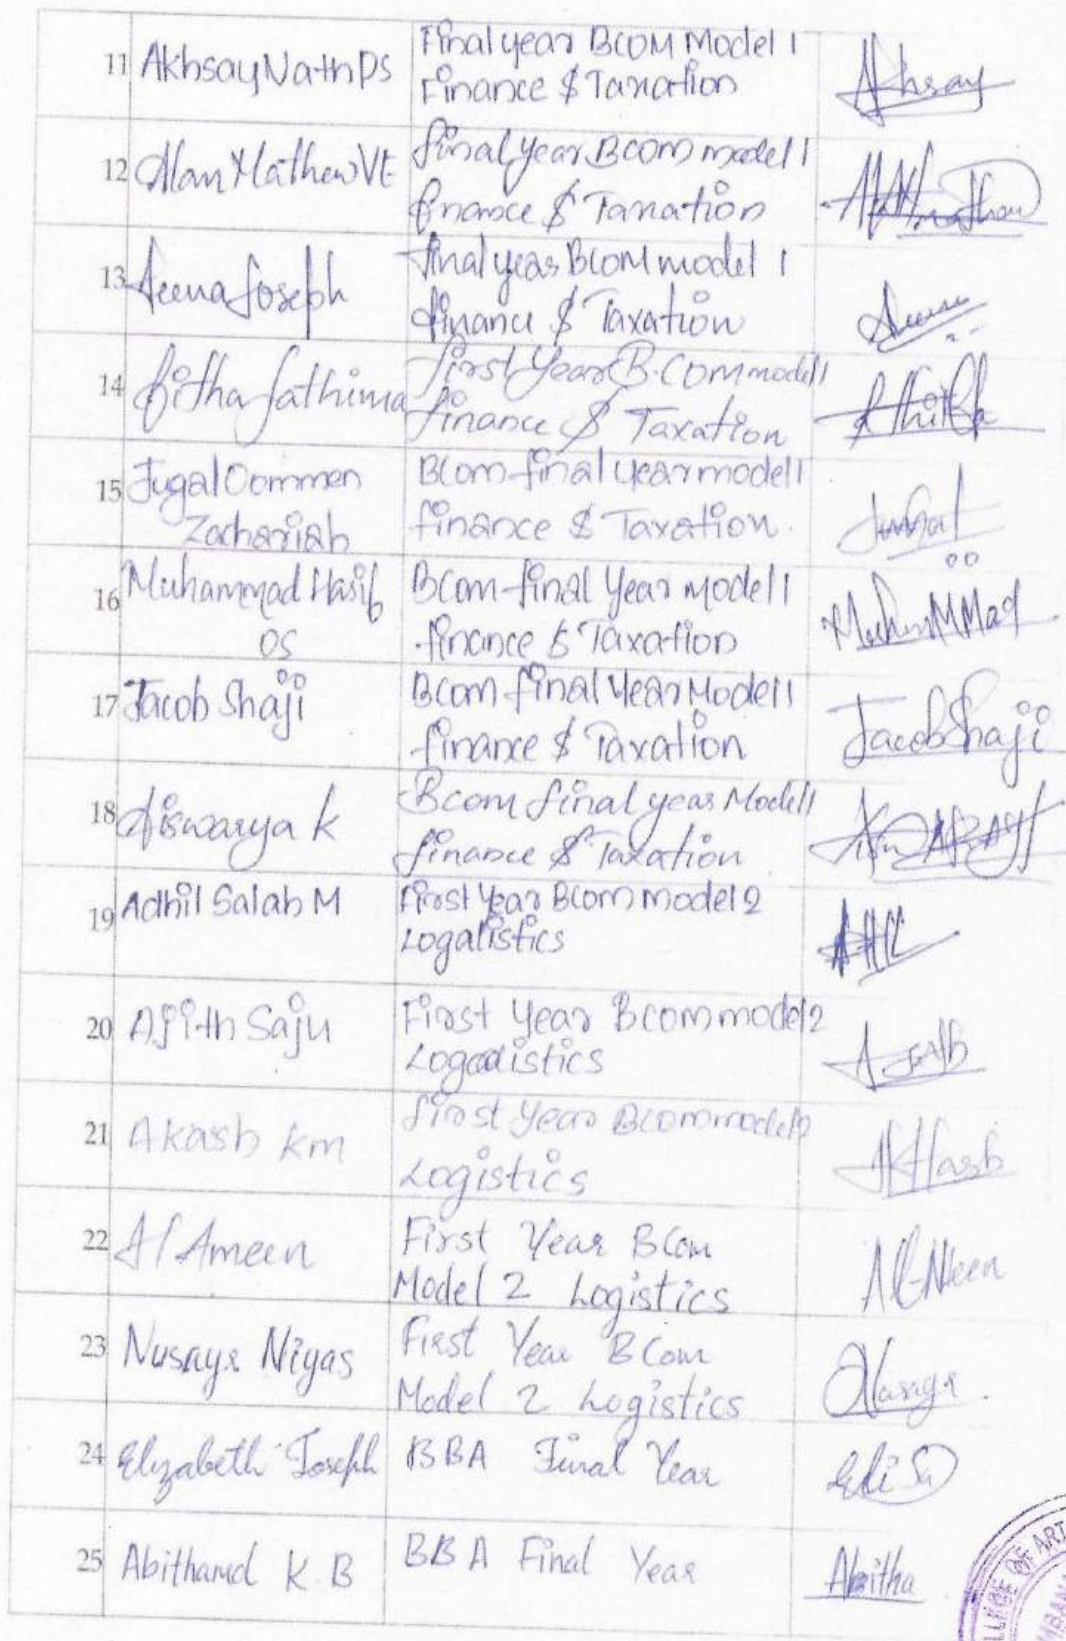 11 Akhsay Nath PS Final year BCOM Model 1
Finance & Taxation Akhsay
12 Alan Mathew Vt final year BCOM model 1
finance & Taxation
13 Aeena Joseph final year BCOM model 1
finance & Taxation
14 fitha fathima first Year B.COM model 1
finance & Taxation
15 Jugal Oommen BCom final year model 1
Zachariah finance & Taxation. Jugal
16 Muhammad Hasib BCom final Year model 1
OS finance & Taxation MuhamMMad
17 Jacob Shaji BCom final Year Model 1
finance & Taxation Jacob Shaji
18 Aiswarya k Bcom final year Model 1
finance & Taxation
19 Adhil Salah M First Year BCom model 2
Logalistics
20 Ajith Saju First Year Bcom model 2
Logalistics
21 Akash km first year BCom model 2
Logistics AKHash
22 Al Ameen First Year BCom
Model 2 Logistics
23 Nusayr Niyas First Year BCom
Model 2 Logistics Nusayr.
24 Elizabeth Joseph BBA Final Year
25 Abithamol K B BBA Final Year Abitha
LLEGE OF ART